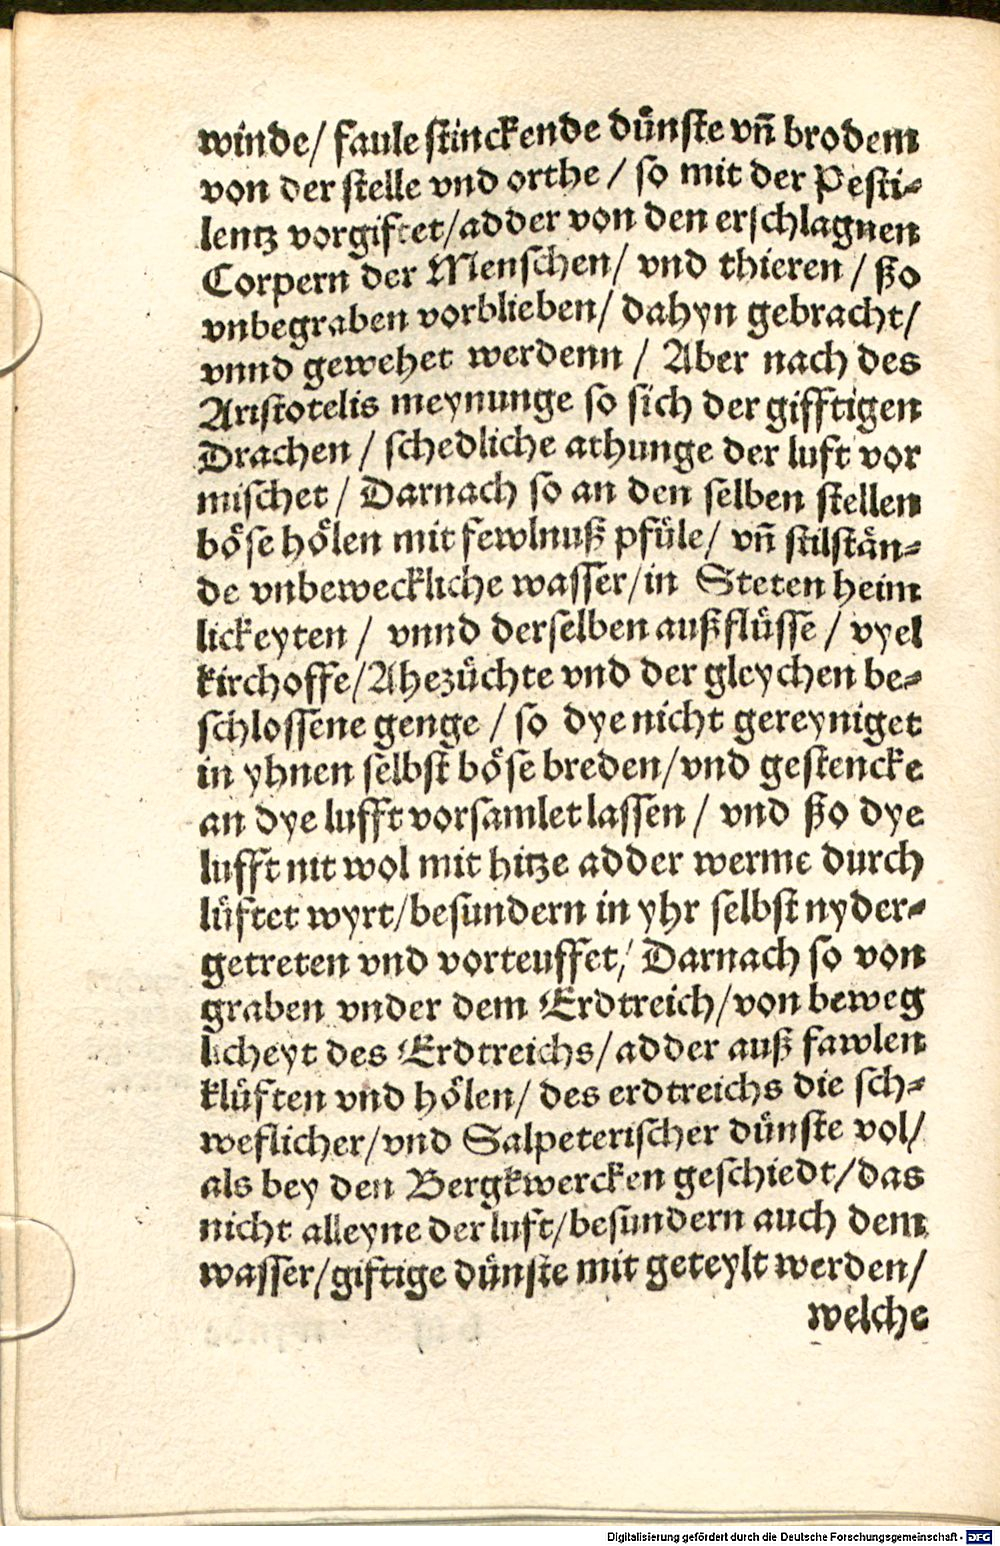 winde/ faule stinckende duͤnste vñ brodem
von der stelle vnd orthe / so mit der Pesti⸗
lentz vorgiftet/adder von den erschlagnen
Corpern der Menschen/ vnd thieren / ßo
vnbegraben vorblieben/ dahyn gebracht/
vnnd gewehet werdenn / Aber nach des
Aristotelis meynunge so sich der gifftigen
Drachen / schedliche athunge der luft vor
mischet / Darnach so an den selben stellen
boͤse hoͤlen mit fewlnuß pfuͤle/ vñ stilstaͤn⸗
de vnbeweckliche wasser/in Steten heim
lickeyten / vnnd derselben außfluͤsse / vyel
kirchoffe/Ahezuͤchte vnd der gleychen be⸗
schlossene genge / so dye nicht gereyniget
in yhnen selbst boͤse breden/vnd gestencke
an dye lufft vorsamlet lassen / vnd ßo dye
lufft nit wol mit hitze adder werme durch
luͤftet wyrt/besundern in yhr selbst nyder⸗
getreten vnd vorteuffet/ Darnach so von
graben vnder dem Erdtreich/von beweg
licheyt des Erdtreichs/adder auß fawlen
kluͤften vnd hoͤlen/ des erdtreichs die sch⸗
weflicher/vnd Salpeterischer duͤnste vol/
als bey den Bergkwercken geschiedt/das
nicht alleyne der luft/besundern auch dem
wasser/giftige duͤnste mit geteylt werden/
welche
Digitalisierung gefördert durch die Deutsche Forschungsgemeinschaft - DFG